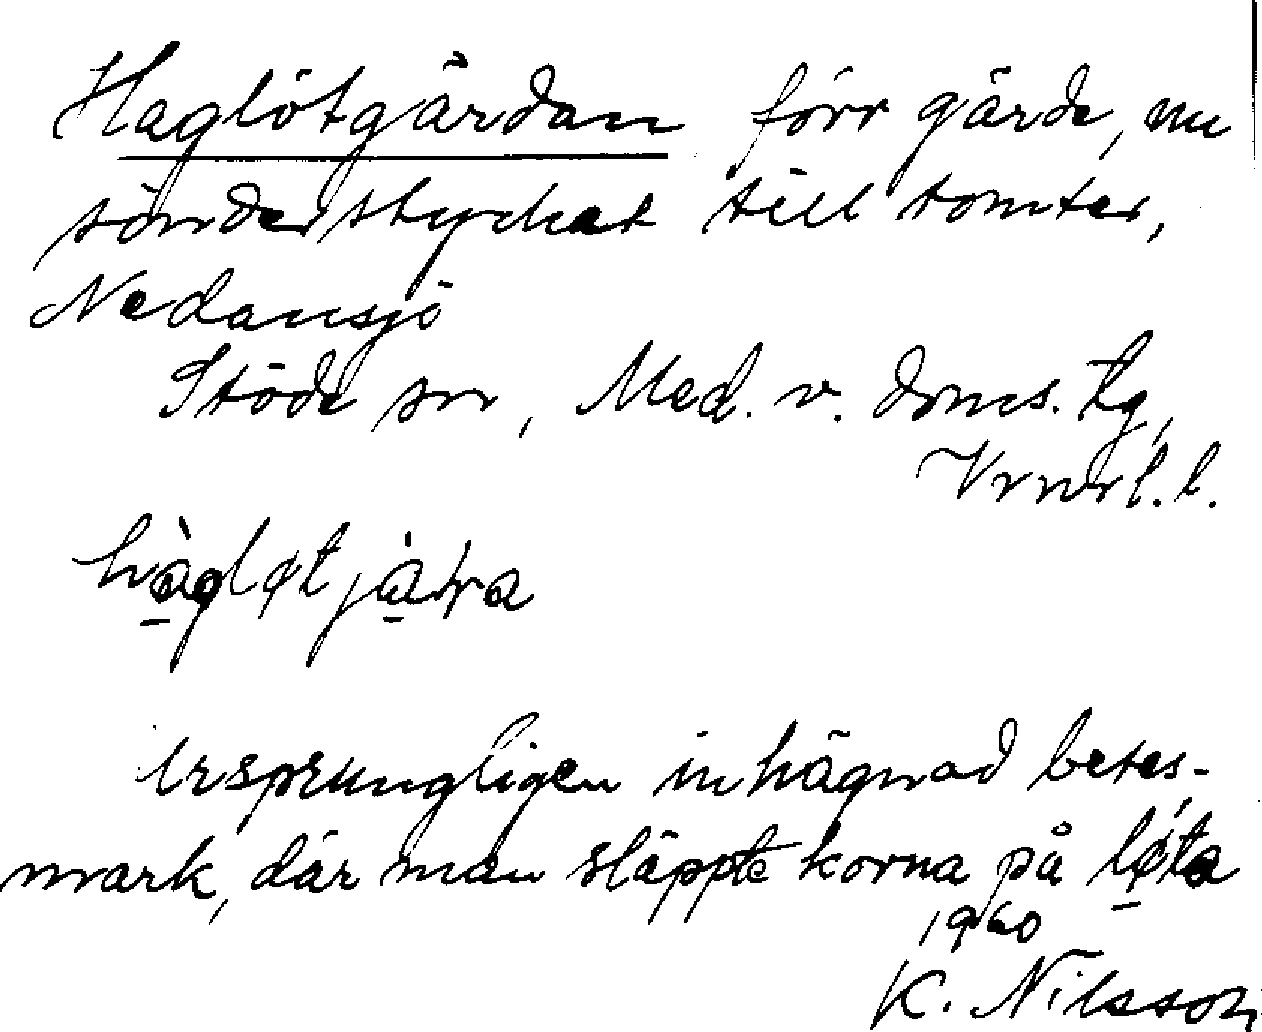 Haglötgärdan förr gärde, nu
sönderstyckat till tomter,
Nedansjö
Stöde sn, Med. v. doms. tg,
l.
hàgløtjàɽa
Ursprungligen inhägnad betes-
mark, där man släppte korna på lø̀ta
1960
K. Nilsson